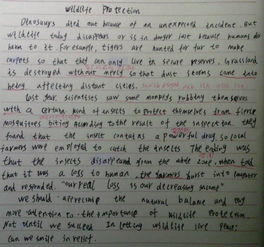 Wildlife Protection
Dinosaurs died out because of an unexpected incident. But
wildlife today disappears or is in danger just because humans do
harm to it. For example, tigers are hunted for fur to make
carpets so that they can only live in secure reserves. Grassland
is destroyed without mercy so that dust storms come into
being affecting distant cities.
Last year scientists saw some monkeys rubbing themselves
with a certain kind of insects to protect themselves from fierce
mosquitoes but according to the result of the inspection they
found that the insect contains a powerful drug, so local
farmers were employed to catch the insects. The ending was
that the insects disappeared from the
that it was a loss to human, the farmers burst into laughter
and responded, "our real loss is our decreasing income"
we should appreciate the natural balance and pay
more attention to the importance of wildlife Protection.
Not until we succeed in letting wildlife live
can we smile in relief.